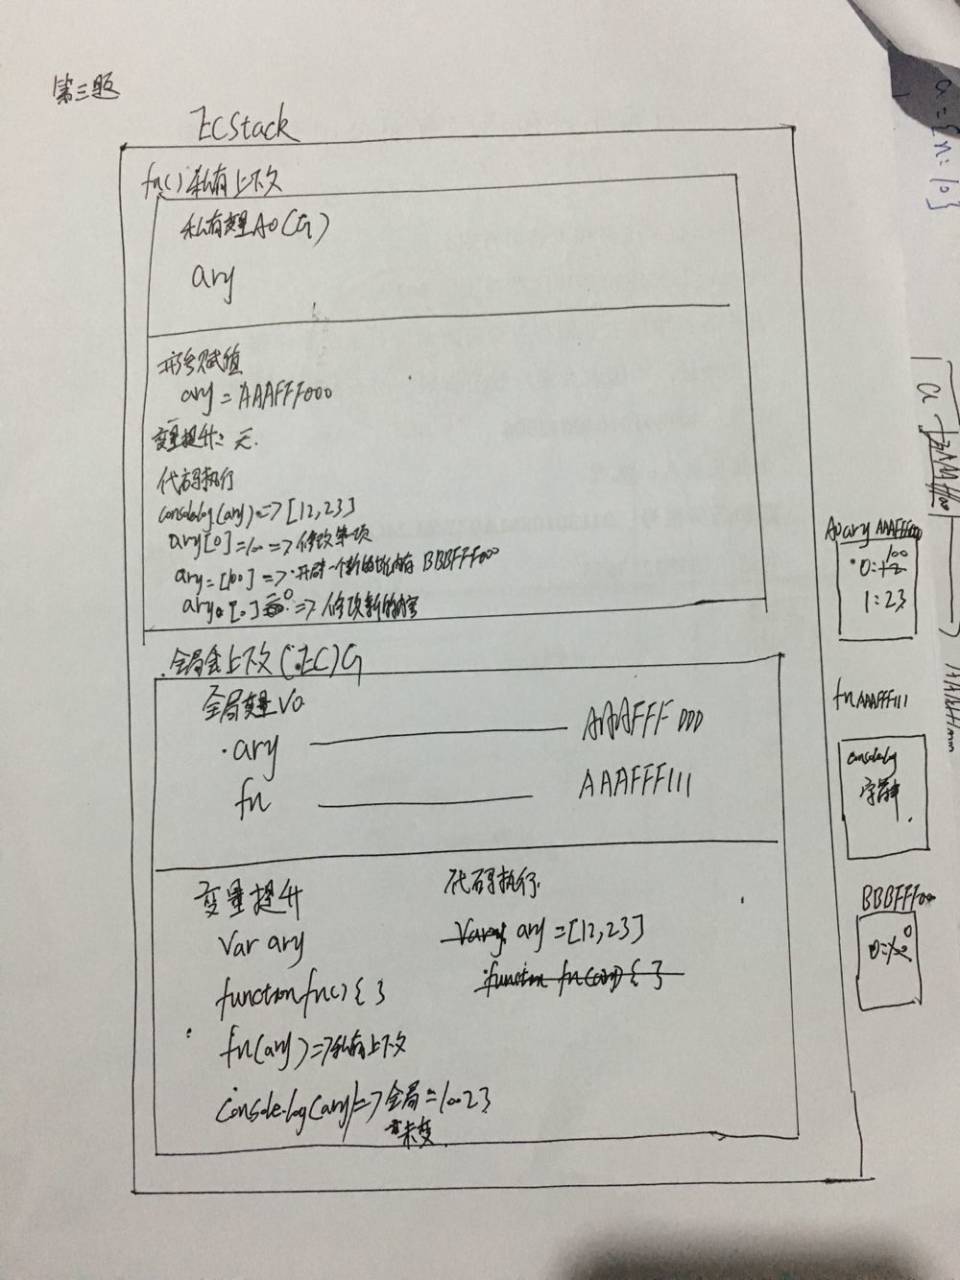 第三题
ECStack
fn()私有上下文
私有变量AO(G)
ary
形参赋值
ary = AAAFFF000
变量提升: 无.
代码执行
console.log(ary)=>[12,23]
ary[0]=100=>修改第一项
ary=[100]=>开辟一个新的堆内存 BBBFFF000
ary[0]=0=>修改新的
全局上下文(EC)G
全局变量VO
ary AAAFFF000
fn AAAFFF111
变量提升
var ary
function fn(){ }
fn(ary)=>私有上下文
console.log(ary)=>全局=100 23
未变
代码执行
Var ary = [12,23]
function fn(ary){ }
a={n:10}
a
AO ary AAAFFF000
0:12 100
1:23
fn AAAFFF111
console.log
字符串
BBBFFF000
0:100 0